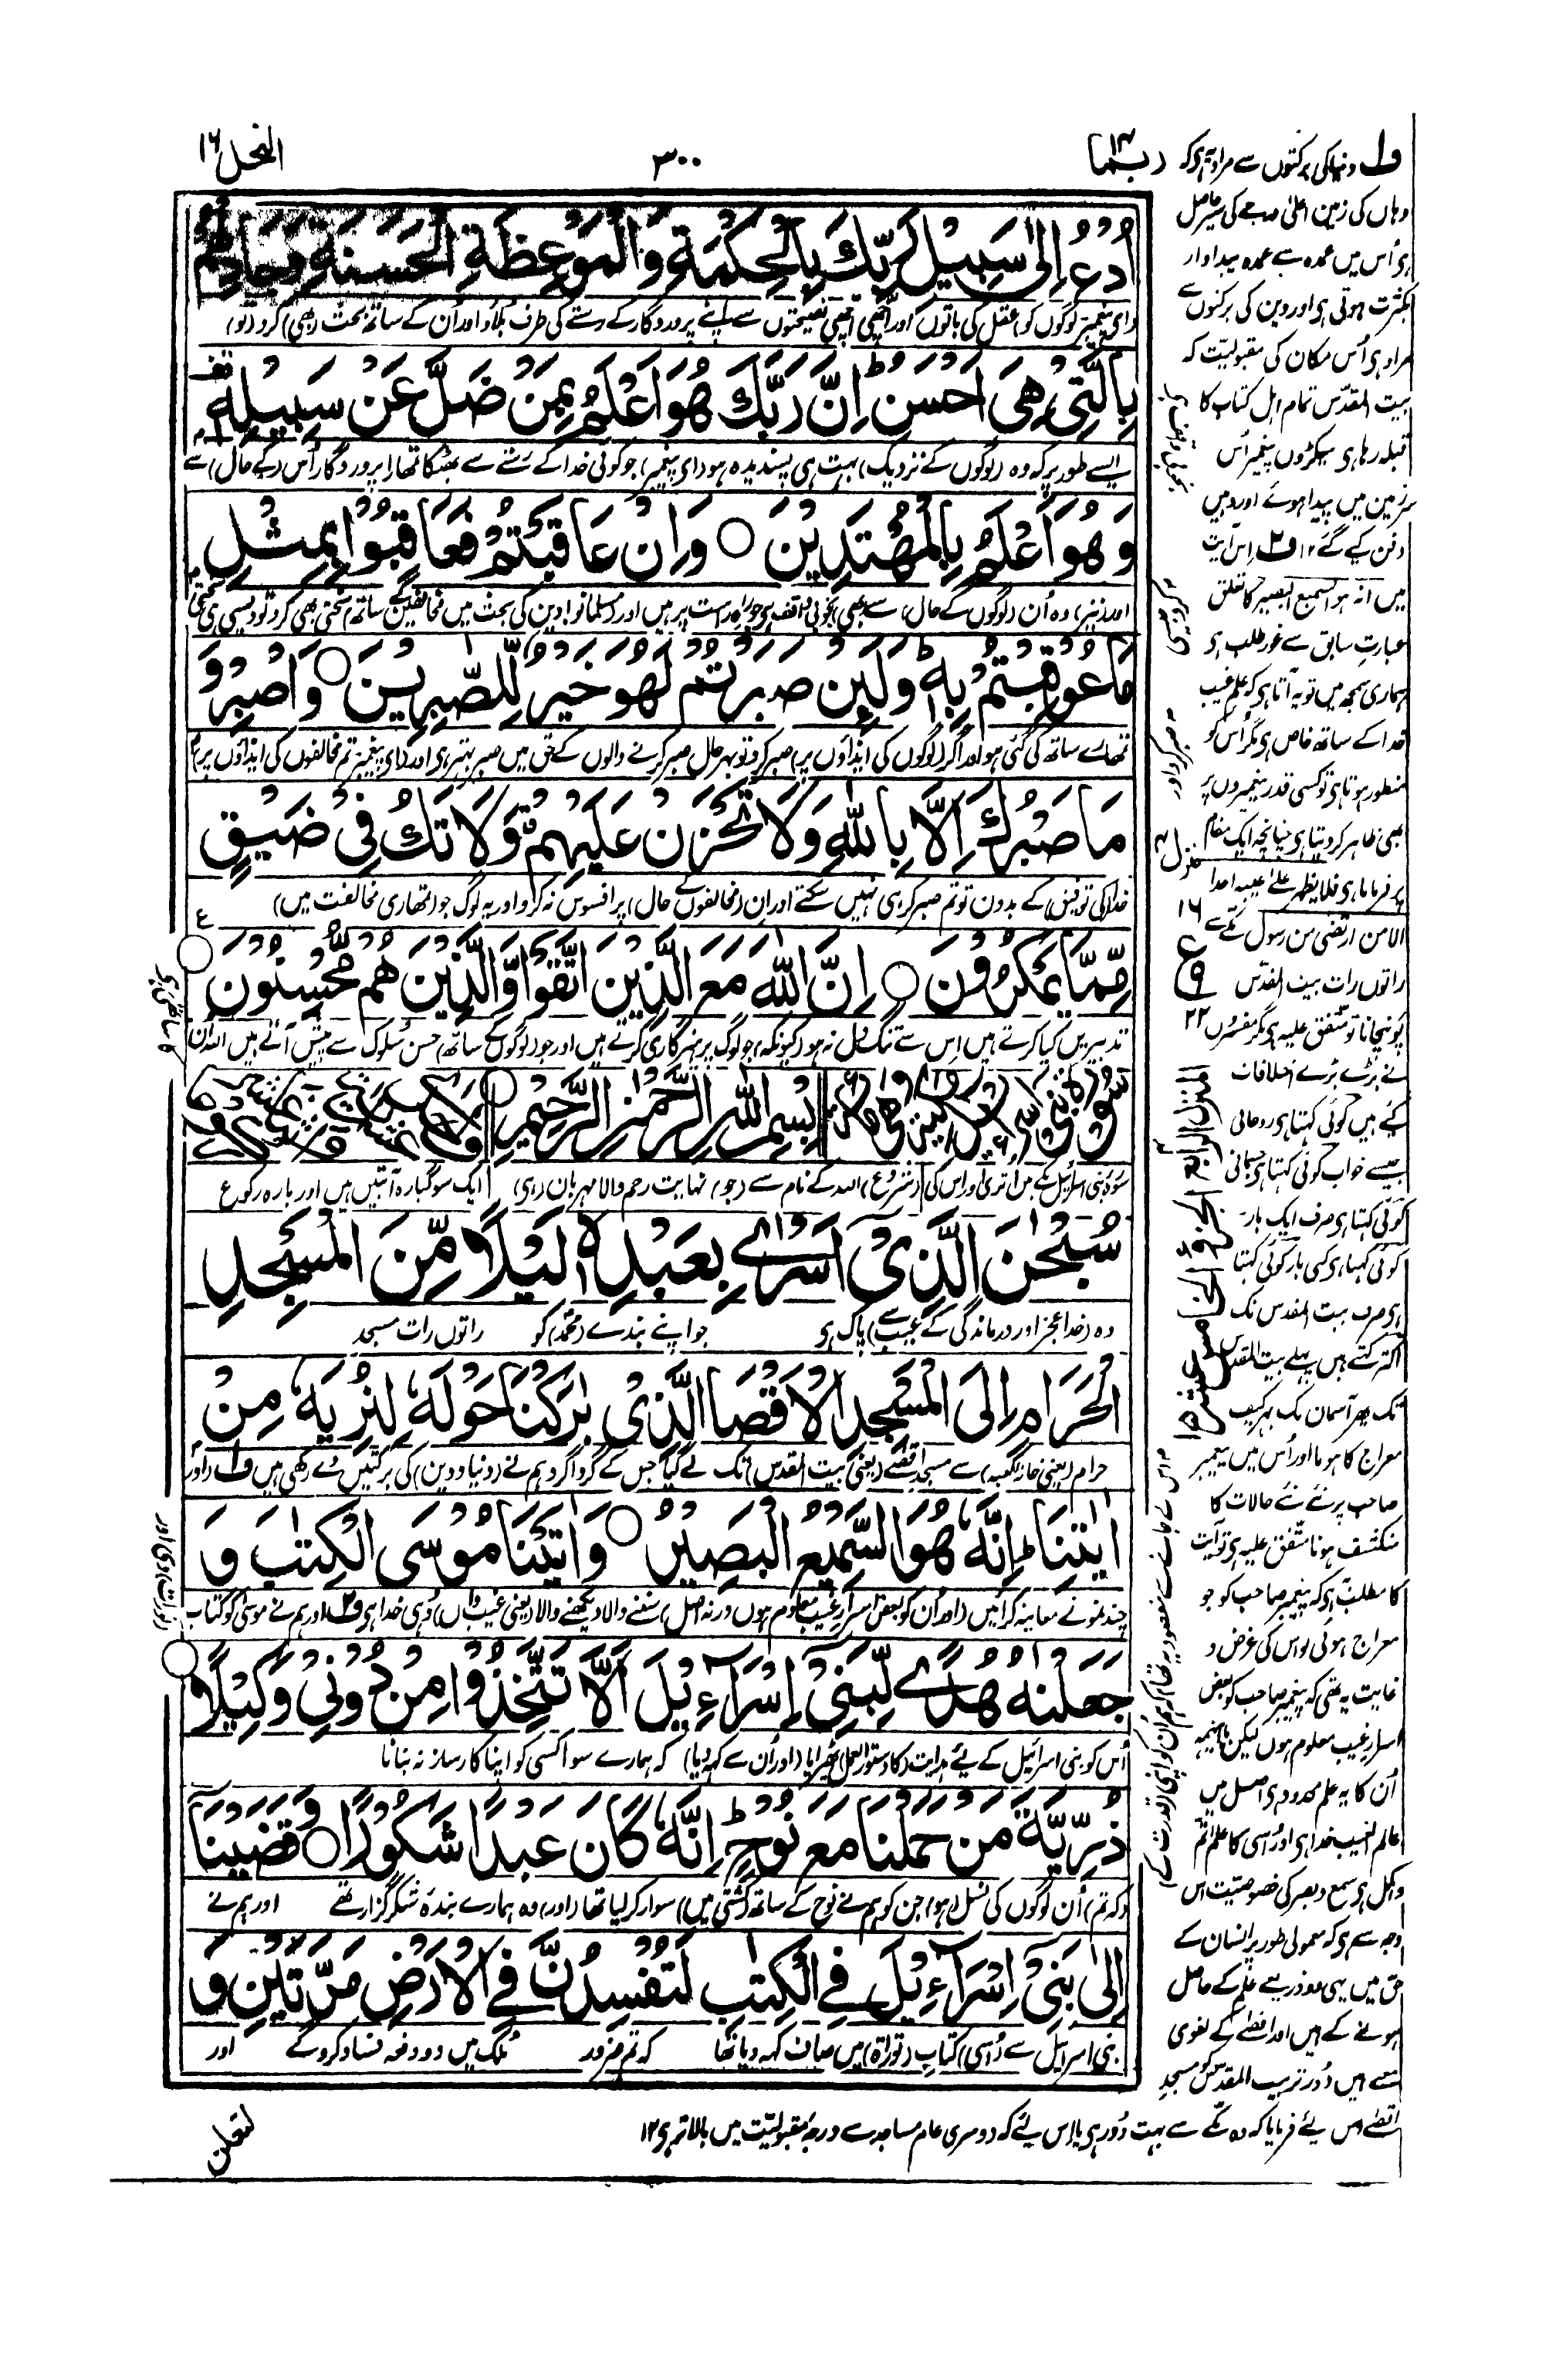 ربما ١٤
٣٠٠
النحل ١٦
اُدْعُ اِلٰى سَبِيْلِ رَبِّكَ بِالْحِكْمَةِ وَالْمَوْعِظَةِ الْحَسَنَةِ وَجَادِلْهُمْ
(ای پیغمبر لوگوں کو) عقل کی باتوں اور اچھی اچھی نصیحتوں سے اپنے پروردگار کے رستے کی طرف بُلاؤ اور اُن کے ساتھ بحث (بھی) کرو (تو)
بِالَّتِىْ هِىَ اَحْسَنُ ؕ اِنَّ رَبَّكَ هُوَ اَعْلَمُ بِمَنْ ضَلَّ عَنْ سَبِيْلِهٖ
ایسے طور پر کہ وہ (لوگوں کے نزدیک) بہت ہی پسندیدہ ہو (ای پیغمبر) جو کوئی خدا کے رستے سے بھٹکا تمھارا پروردگار اُس (کے حال) سے
وَهُوَ اَعْلَمُ بِالْمُهْتَدِيْنَ ○ وَاِنْ عَاقَبْتُمْ فَعَاقِبُوْا بِمِثْلِ
اور (نیز) وہ اُن (لوگوں کے حال) سے بھی بخوبی واقف ہی جو راہ راست پر ہیں اور (مسلمانو! دین کی بحث میں مخالفین کے ساتھ) سختی بھی کرو تو ویسی ہی سختی
مَا عُوْقِبْتُمْ بِهٖ ؕ وَلَئِنْ صَبَرْتُمْ لَهُوَ خَيْرٌ لِّلصّٰبِرِيْنَ ○ وَاصْبِرْ وَ
تمھارے ساتھ کی گئی ہو اور اگر (لوگوں کی ایذاؤں پر) صبر کرو تو بہر حال صبر کرنے والوں کے حق میں صبر بہتر ہی اور (ای پیغمبر تم مخالفوں کی ایذاؤں پر)
مَا صَبْرُكَ اِلَّا بِاللّٰهِ وَلَا تَحْزَنْ عَلَيْهِمْ وَلَا تَكُ فِىْ ضَيْقٍ
خدا کی توفیق کے بدون تو تم صبر کر ہی نہیں سکتے اور ان (مخالفوں کے حال) پر افسوس نہ کرو اور یہ لوگ جو (تمھاری مخالفت میں)
مِّمَّا يَمْكُرُوْنَ ○ اِنَّ اللّٰهَ مَعَ الَّذِيْنَ اتَّقَوْا وَّالَّذِيْنَ هُمْ مُّحْسِنُوْنَ
تدبیریں کیا کرتے ہیں اِس سے تنگ دل نہ ہو (کیونکہ) جو لوگ پرہیزگاری کرتے ہیں اور جو (لوگوں کے ساتھ) حسن سلوک سے پیش آتے ہیں اللہ اُن
بِسْمِ اللّٰهِ الرَّحْمٰنِ الرَّحِيْمِ
سورۂ بنی اسرائیل مکے میں اُتری اور اس کی (شروع) اللہ کے نام سے (جو) نہایت رحم والا مہربان (ہی) ایک سو گیارہ آیتیں ہیں اور بارہ رکوع
سُبْحٰنَ الَّذِىْ اَسْرٰے بِعَبْدِهٖ لَيْلًا مِّنَ الْمَسْجِدِ
وہ (خدا عجز اور درماندگی کے عیب سے) پاک ہی جو اپنے بندے (محمد) کو راتوں رات مسجد
الْحَرَامِ اِلَى الْمَسْجِدِ الْاَقْصَا الَّذِىْ بٰرَكْنَا حَوْلَهٗ لِنُرِيَهٗ مِنْ
حرام (یعنی خانۂ کعبہ) سے مسجد اقصٰے (یعنی بیت المقدس) تک لے گیا جس کے گرداگرد ہم نے (دنیا و دین کی) برکتیں دے رکھی ہیں ف۱ (اور
اٰيٰتِنَا ؕ اِنَّهٗ هُوَ السَّمِيْعُ الْبَصِيْرُ ○ وَاٰتَيْنَا مُوْسَى الْكِتٰبَ وَ
چند نمونے معاینہ کرائیں (اور اُن کو بعض اسرار غیب معلوم ہوں ورنہ اصل) سننے والا دیکھنے والا (یعنی غیب داں) وُہی خدا ہی ف۲ اور ہم نے موسیٰ کو کتاب
جَعَلْنٰهُ هُدًے لِّبَنِىْ اِسْرَآءِيْلَ اَلَّا تَتَّخِذُوْا مِنْ دُوْنِىْ وَكِيْلًا
اُس کو بنی اسرائیل کے لیے ہدایت (کا دستور العمل) ٹھیرایا (اور اُن سے کہہ دیا) کہ ہمارے سوا کسی کو اپنا کارساز نہ بنانا
ذُرِّيَّةَ مَنْ حَمَلْنَا مَعَ نُوْحٍ ؕ اِنَّهٗ كَانَ عَبْدًا شَكُوْرًا ○ وَقَضَيْنَآ
(کہ تم) اُن لوگوں کی نسل (ہو) جن کو ہم نے نوح کے ساتھ (کشتی میں) سوار کر لیا تھا (اور) وہ ہمارے بندۂ شکرگزار تھے اور ہم نے
اِلٰى بَنِىْٓ اِسْرَآءِيْلَ فِے الْكِتٰبِ لَتُفْسِدُنَّ فِے الْاَرْضِ مَرَّتَيْنِ وَ
بنی اسرائیل سے (اُسی) کتاب (توراۃ) میں صاف کہہ دیا تھا کہ تم ضرور ملک میں دو دفعہ فساد کروگے اور
ف۱ دنیا کی برکتوں سے مراد یہ ہی کہ
وہاں کی زمین اعلیٰ درجے کی سیر حاصل
ہی اُس میں عمدہ سے عمدہ پیداوار
بکثرت ہوتی ہی اور دین کی برکتوں سے
مراد ہی اُس مکان کی مقبولیت کہ
بیت المقدّس تمام اہل کتاب کا
قبلہ رہا ہی سیکڑوں پیغمبر اُس
سرزمین میں پیدا ہوئے اور وہیں
دفن کیے گئے ۱۲ ف۲ اِس آیت
میں انہ ہوالسمیع البصیر کا تعلق
عبارتِ سابق سے غور طلب ہی
ہماری سمجھ میں تو یہ آتا ہی کہ علم غیب
خدا کے ساتھ خاص ہی مگر اُس کو
منظور ہوتا ہی تو کسی قدر پیغمبروں پر
بھی ظاہر کر دیتا ہی چنانچہ ایک مقام
پر فرمایا ہی فلا یظہر علیٰ غیبہ احدا
الا من ارتضیٰ من رسول مکے سے
راتوں رات بیت المقدّس
پُونہچانا تو متفق علیہ ہی مگر مفسّروں
نے بڑے بڑے اختلافات
کیے ہیں کوئی کہتا ہی روحانی
جیسے خواب کوئی کہتا ہی جسمانی
کوئی کہتا ہی صرف ایک بار
کوئی کہتا ہی کئی بار کوئی کہتا
ہی صرف بیت المقدس تک
اکثر کہتے ہیں پہلے بیت المقدس
تک پھر آسمان تک بہرکیف
معراج کا ہونا اور اُس میں پیغمبر
صاحب پر نئے نئے حالات کا
منکشف ہونا متفق علیہ ہی تو آیت
کا مطلب ہی کہ پیغمبر صاحب کو جو
معراج ہوئی تو اس کی غرض و
غایت یہ تھی کہ پیغمبر صاحب کو بعض
اسرار غیب معلوم ہوں لیکن بااینہمہ
اُن کا یہ علم محدود ہی اصل میں
عالم الغیب خدا ہی اور اُسی کا علم اتمّ
و اکمل ہی سمع و بصر کی خصوصیّت اس
وجہ سے ہی کہ معمولی طور پر انسان کے
حق میں یہی دو ذریعے علم کے حاصل
ہونے کے ہیں اور اقصٰے کے لغوی
معنے ہیں دُور تر بیت المقدس کو مسجد
اقصٰے اس لیے فرمایا کہ وہ مکّے سے بہت دُور ہی یا اس لیے کہ دوسری عام مساجد سے درجۂ مقبولیّت میں بالاتر ہی ۱۲
منزل ۴
ع
١٦
٩
٢٢
المنزل الرابع
الجزؤ الخامس عشر